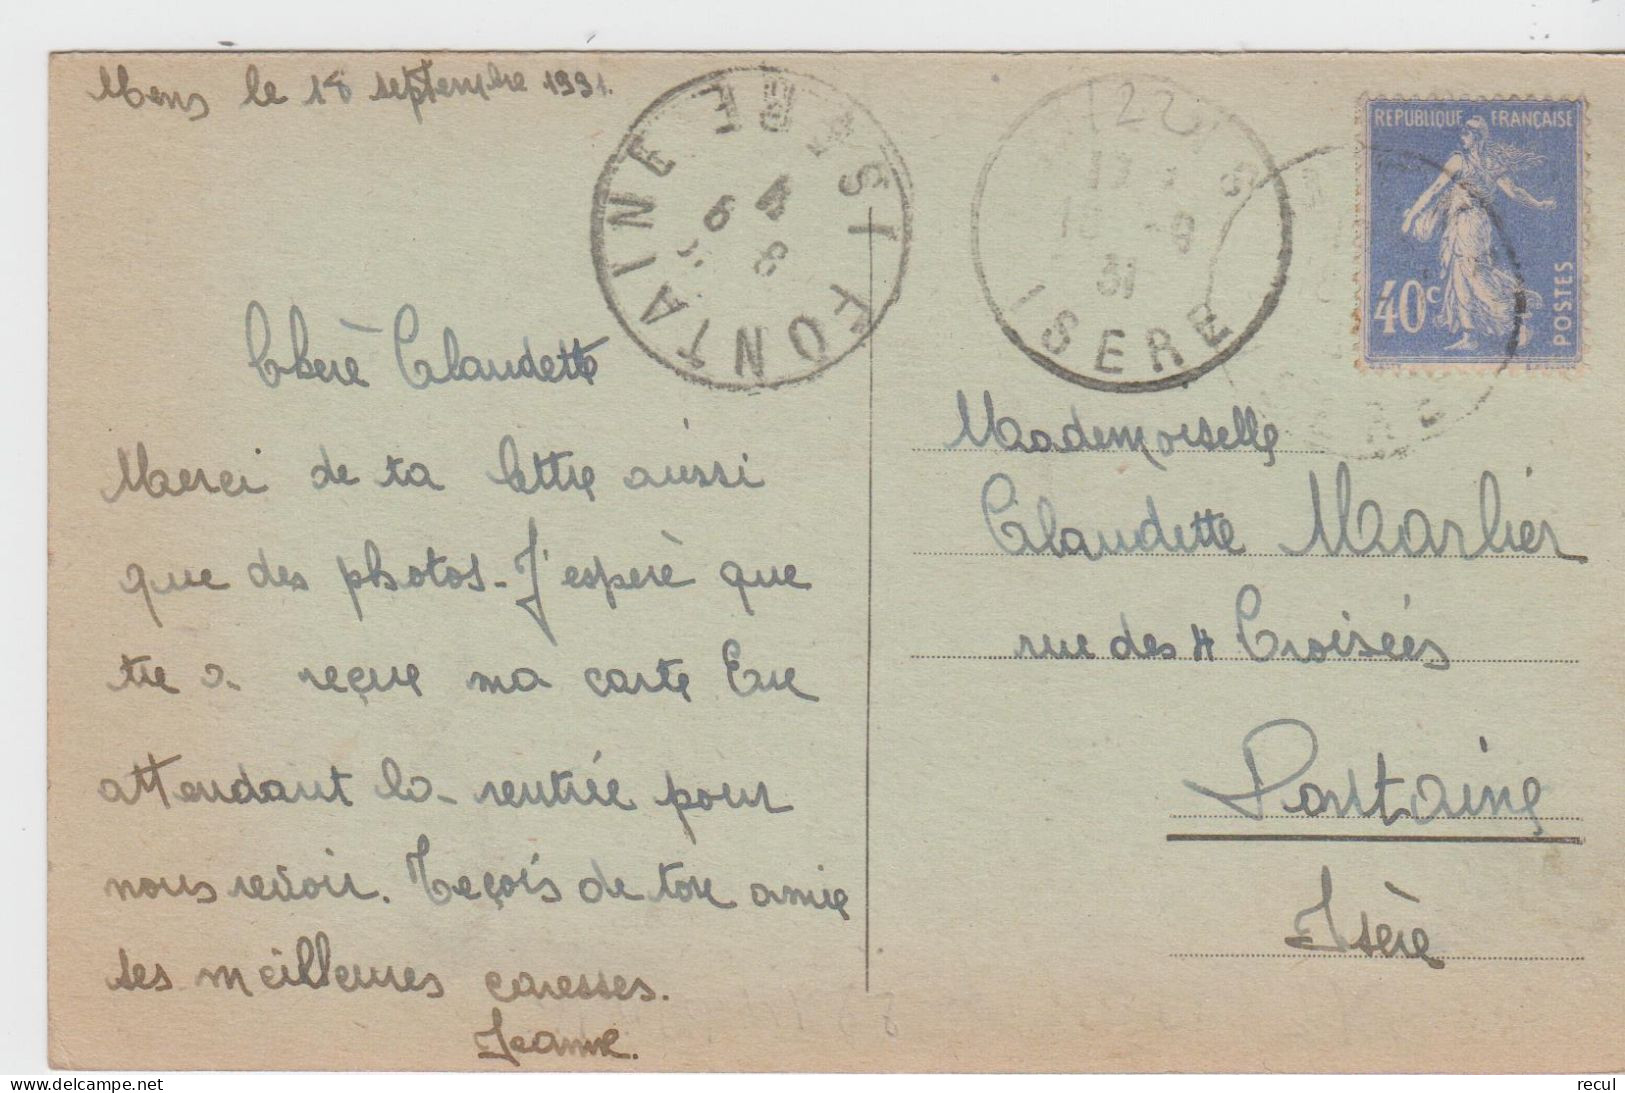 Mens le 18 septembre 1931.
Cherè Claudette
Merci de ta lettre aussi
que des photos - J'esperè que
tu a reçue ma carte En
attendant la rentrée pour
nous revoir. Reçois de ton amie
ses meilleures caresses.
Jeanne.
FONTAINE ISERE
ISERE
31
REPUBLIQUE FRANÇAISE
40c
POSTES
Mademoiselle
Claudette Marlier
rue des 4 Croisées
Fontaine
Isère
delcampe.net
recul